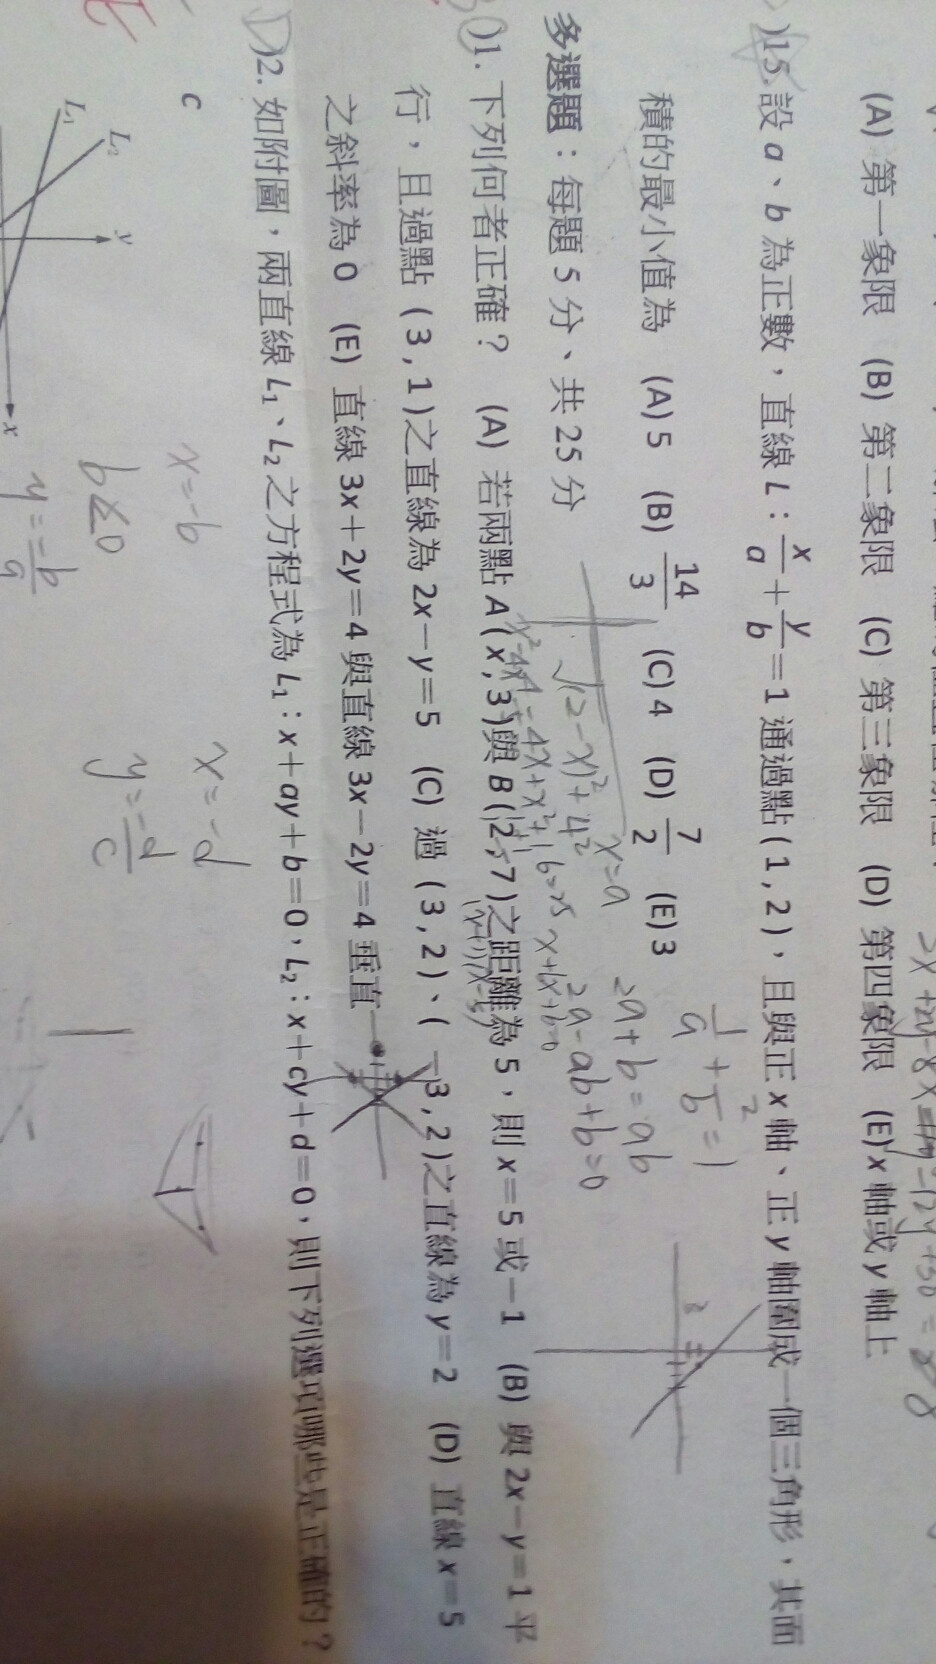 (A) 第一象限 (B) 第二象限 (C) 第三象限 (D) 第四象限 (E) x 軸或 y 軸上
)15. 設 a、b 為正數，直線 L：x/a + y/b = 1 通過點 (1, 2)，且與正 x 軸、正 y 軸圍成一個三角形，其面
積的最小值為 (A) 5 (B) 14/3 (C) 4 (D) 7/2 (E) 3
1/a + 2/b = 1
2a + b = ab
2a - ab + b = 0
x = a
x + by + b = 0
多選題：每題 5 分、共 25 分
√(2-x)² + 4²
)1. 下列何者正確？ (A) 若兩點 A(x, 3)與 B(2, 7)之距離為 5，則 x＝5 或－1 (B) 與 2x－y＝1 平
行，且過點 (3, 1)之直線為 2x－y＝5 (C) 過 (3, 2)、(－3, 2)之直線為 y＝2 (D) 直線 x＝5
之斜率為 0 (E) 直線 3x＋2y＝4 與直線 3x－2y＝4 垂直
)2. 如附圖，兩直線 L₁、L₂ 之方程式為 L₁：x＋ay＋b＝0，L₂：x＋cy＋d＝0，則下列選項哪些是正確的？
c
x = -b
x = -d
L₁
L₂
y
x
b<0
y = -d/c
y = -b/a